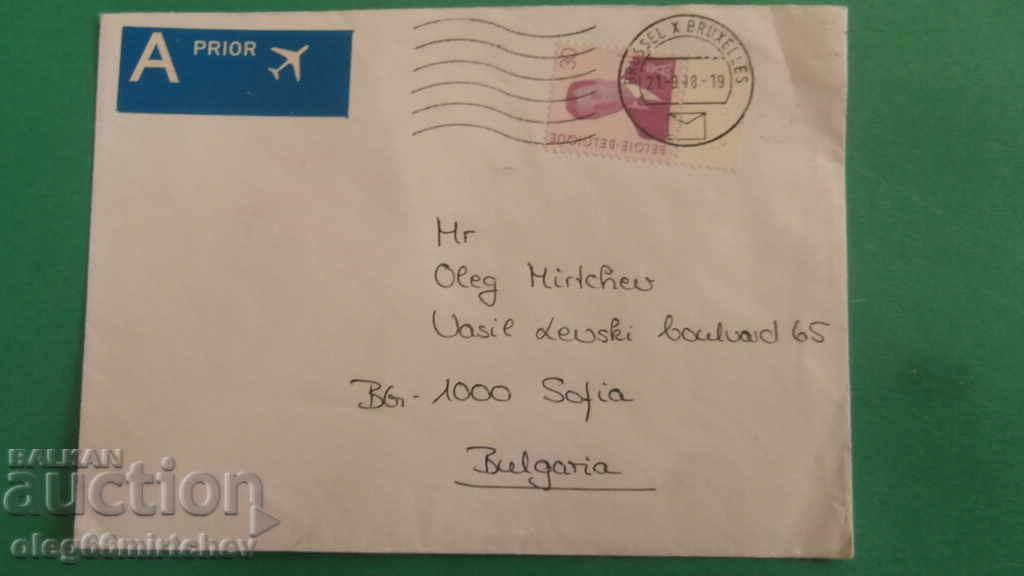 A PRIOR
BRUSSEL X BRUXELLES
21-9-98-19
30
BELGIE-BELGIQUE
Mr
Oleg Mirtchev
Vasil Levski boulvard 65
BG-1000 Sofia
Bulgaria
BALKAN
auction
oleg66mirtchev